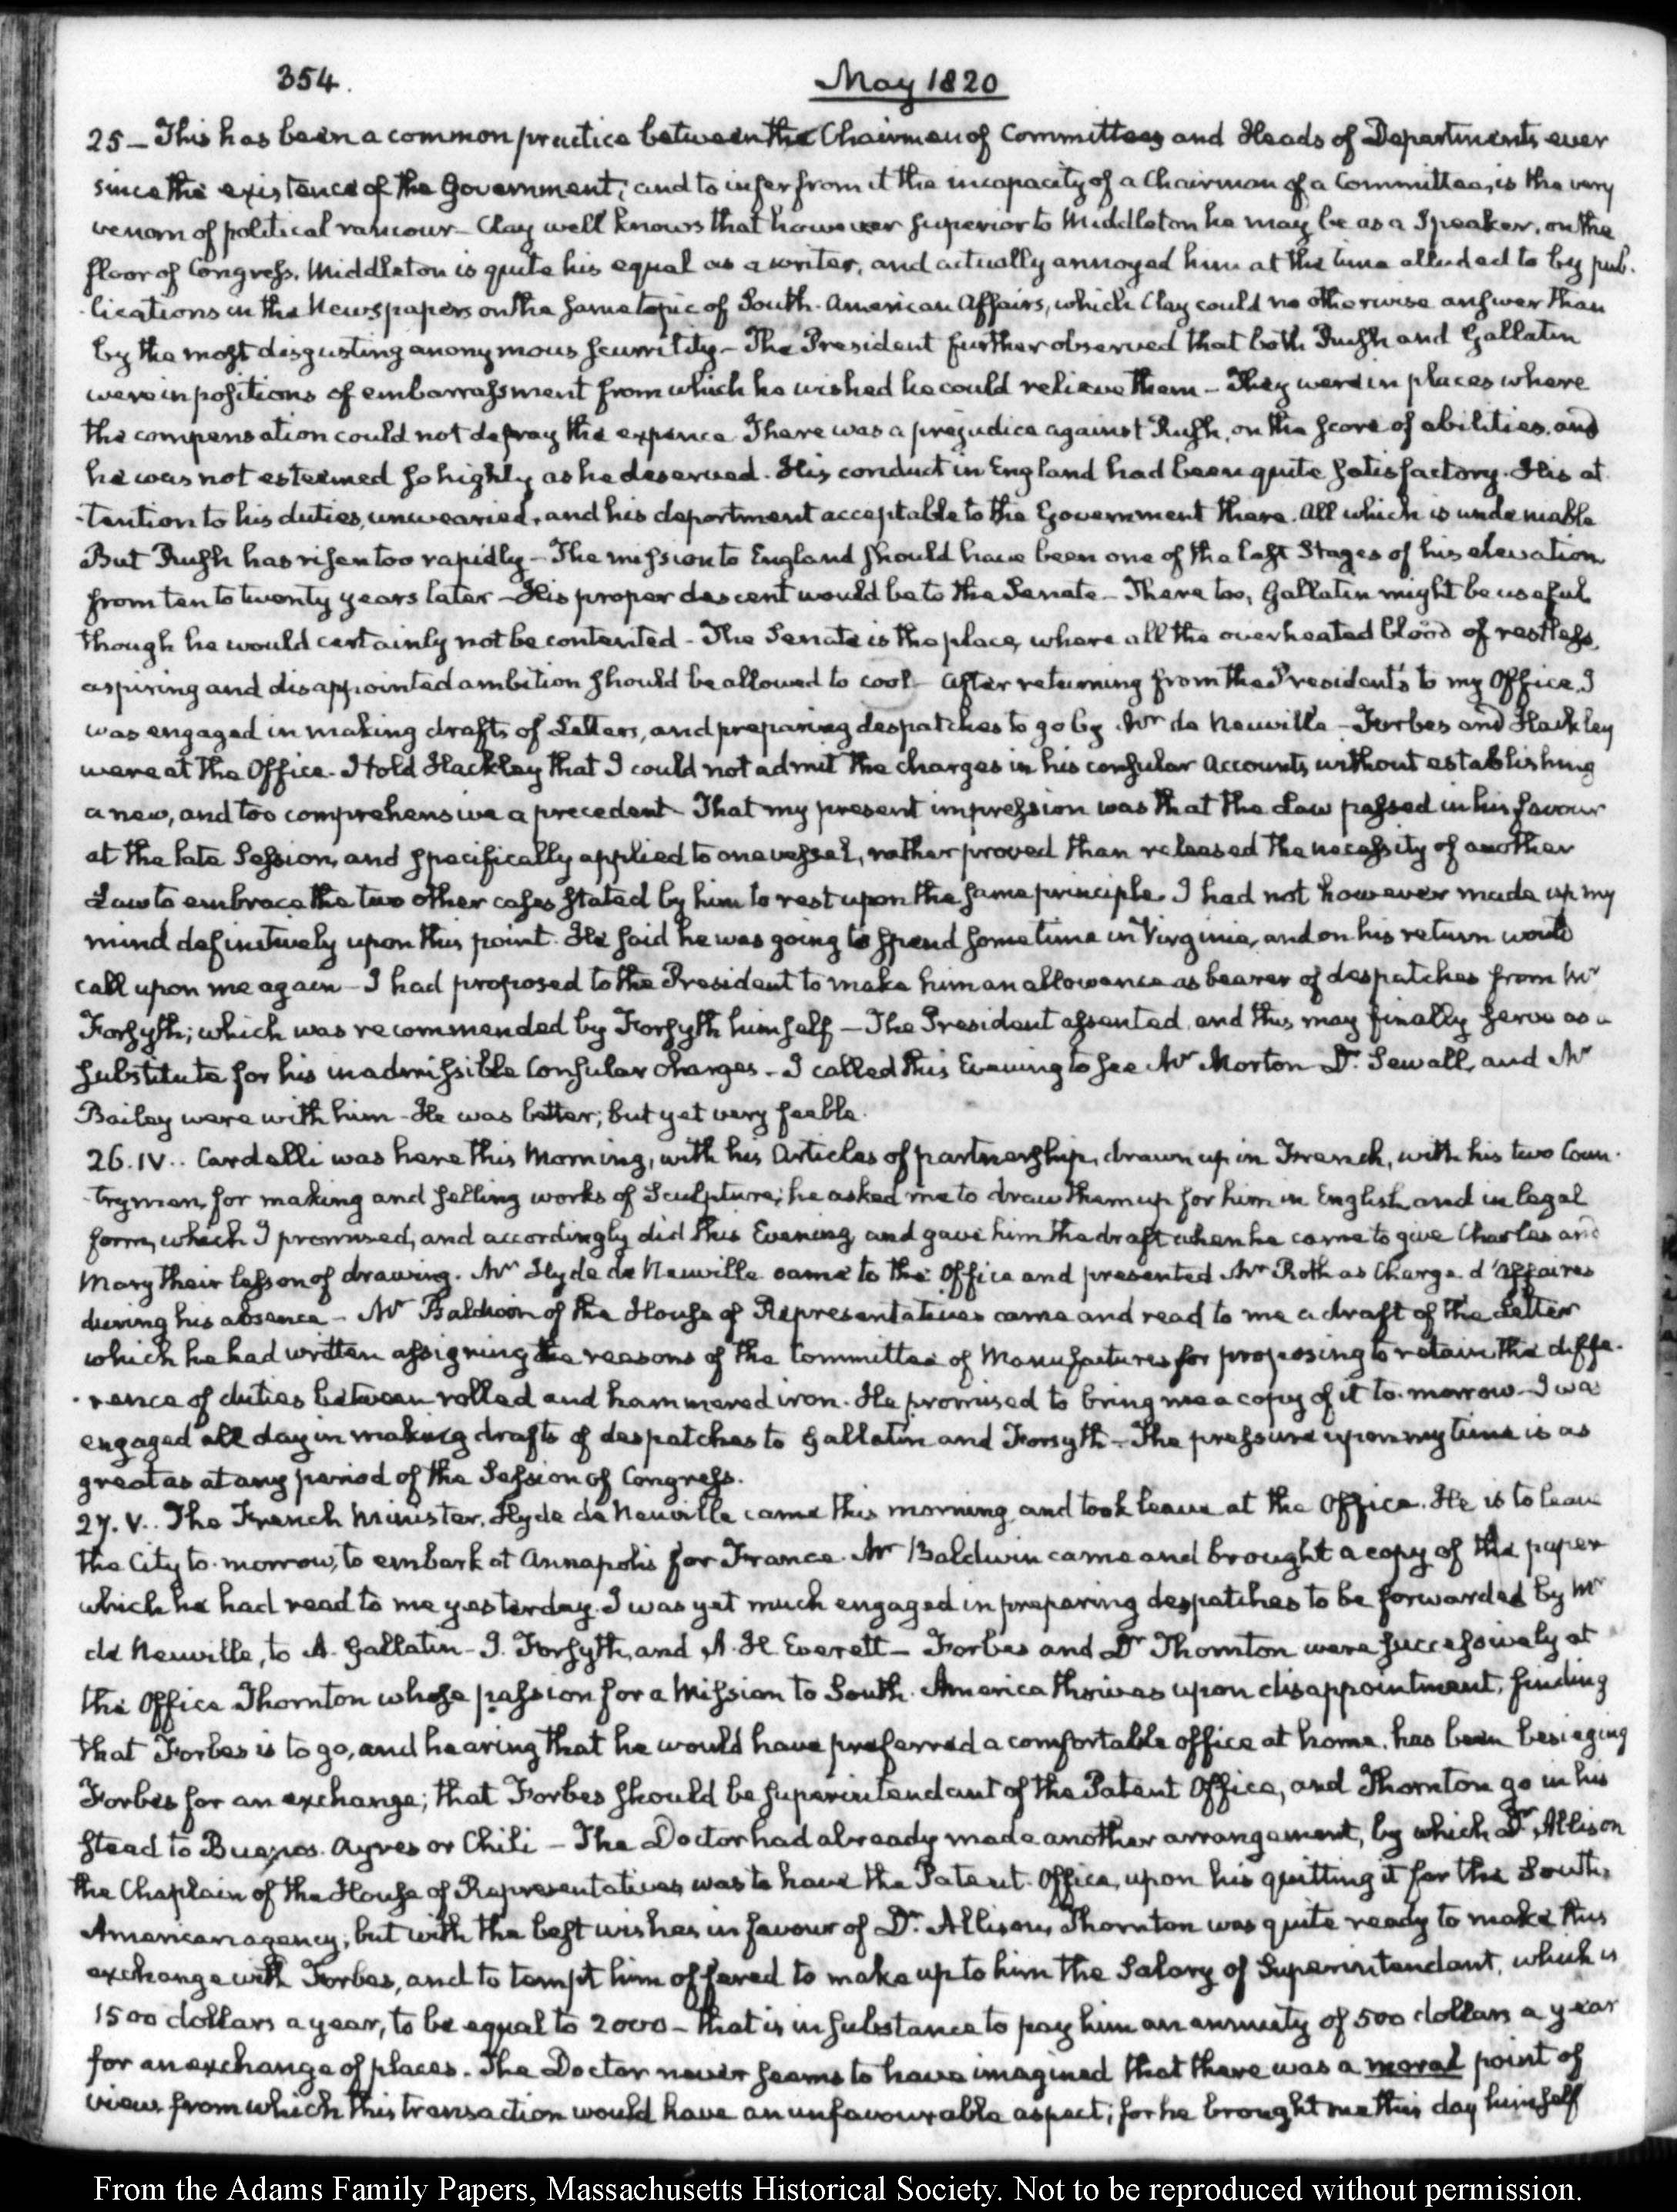 354.
May 1820
25 – This has been a common practice between the Chairmen of Committees and Heads of Departments ever
since the existence of the Government; and to infer from it the incapacity of a Chairman of a Committee, is the very
venom of political rancour – Clay well knows that however superior to Middleton he may be as a Speaker, on the
floor of Congress, Middleton is quite his equal as a writer, and actually annoyed him at the time alluded to by pub-
-lications in the Newspapers on the same topic of South-American Affairs, which Clay could no otherwise answer than
by the most disgusting anonymous scurrility – The President further observed that both Rush and Gallatin
were in positions of embarrassment from which he wished he could relieve them – They were in places where
the compensation could not defray the expence. There was a prejudice against Rush, on the score of abilities, and
he was not esteemed so highly as he deserved. His conduct in England had been quite satisfactory. His at
-tention to his duties, unwearied, and his department acceptable to the Government there. All which is undeniable
But Rush has risen too rapidly – The mission to England should have been one of the last Stages of his elevation
from ten to twenty years later – His proper descent would be to the Senate – There too, Gallatin might be useful
though he would certainly not be contented – The Senate is the place, where all the overheated blood of restless,
aspiring and disappointed ambition should be allowed to cool – After returning from the President's to my Office, I
was engaged in making drafts of Letters, and preparing despatches to go by Mr de Neuville – Forbes and Hackley
were at the Office. I told Hackley that I could not admit the charges in his consular Accounts, without establishing
a new, and too comprehensive a precedent – That my present impression was that the Law passed in his favour
at the late Session, and specifically applied to one vessel, rather proved than released the necessity of another
Law to embrace the two other cases stated by him to rest upon the same principle. I had not however made up my
mind definitively upon this point. He said he was going to spend some time in Virginia, and on his return would
call upon me again – I had proposed to the President to make him an allowance as bearer of despatches from Mr
Forsyth; which was recommended by Forsyth himself – The President assented, and this may finally serve as a
substitute for his inadmissible Consular charges – I called this Evening to see Mr Morton – Dr. Sewall, and Mr
Bailey were with him – He was better; but yet very feeble.
26. IV.. Cardelli was here this Morning, with his Articles of partnership, drawn up in French, with his two Coun-
-trymen, for making and selling works of Sculpture; he asked me to draw them up for him in English, and in legal
form, which I promised, and accordingly did this Evening, and gave him the draft when he came to give Charles and
Mary their lesson of drawing. Mr Hyde de Neuville came to the Office and presented Mr Roth as Chargé d'Affaires
during his absence – Mr Baldwin of the House of Representatives came and read to me a draft of the Letter
which he had written assigning the reasons of the Committee of Manufactures for proposing to retain the diffe-
-rence of duties between rolled and hammered iron. He promised to bring me a copy of it to-morrow – I was
engaged all day in making drafts of despatches to Gallatin and Forsyth – The pressure upon my time is as
great as at any period of the Session of Congress.
27. V.. The French Minister, Hyde de Neuville came this morning, and took leave at the Office. He is to leave
the City to-morrow, to embark at Annapolis for France. Mr Baldwin came and brought a copy of the paper
which he had read to me yesterday. I was yet much engaged in preparing despatches to be forwarded by Mr
de Neuville, to A. Gallatin – J. Forsyth, and A. H. Everett – Forbes and Dr Thornton were successively at
the Office Thornton whose passion for a Mission to South-America thrives upon disappointment, finding
that Forbes is to go, and hearing that he would have preferred a comfortable office at home, has been besieging
Forbes for an exchange; that Forbes should be superintendant of the Patent Office, and Thornton go in his
stead to Buenos-Ayres or Chili – The Doctor had already made another arrangement, by which Dr Allison
the Chaplain of the House of Representatives was to have the Patent-Office, upon his quitting it for the South
American agency; but with the best wishes in favour of Dr. Allison, Thornton was quite ready to make this
exchange with Forbes, and to tempt him offered to make up to him the Salary of Superintendant, which is
1500 dollars a year, to be equal to 2000 – that is in substance to pay him an annuity of 500 dollars a year
for an exchange of places. The Doctor never seems to have imagined that there was a moral point of
view from which this transaction would have an unfavourable aspect; for he brought me this day himself
From the Adams Family Papers, Massachusetts Historical Society. Not to be reproduced without permission.